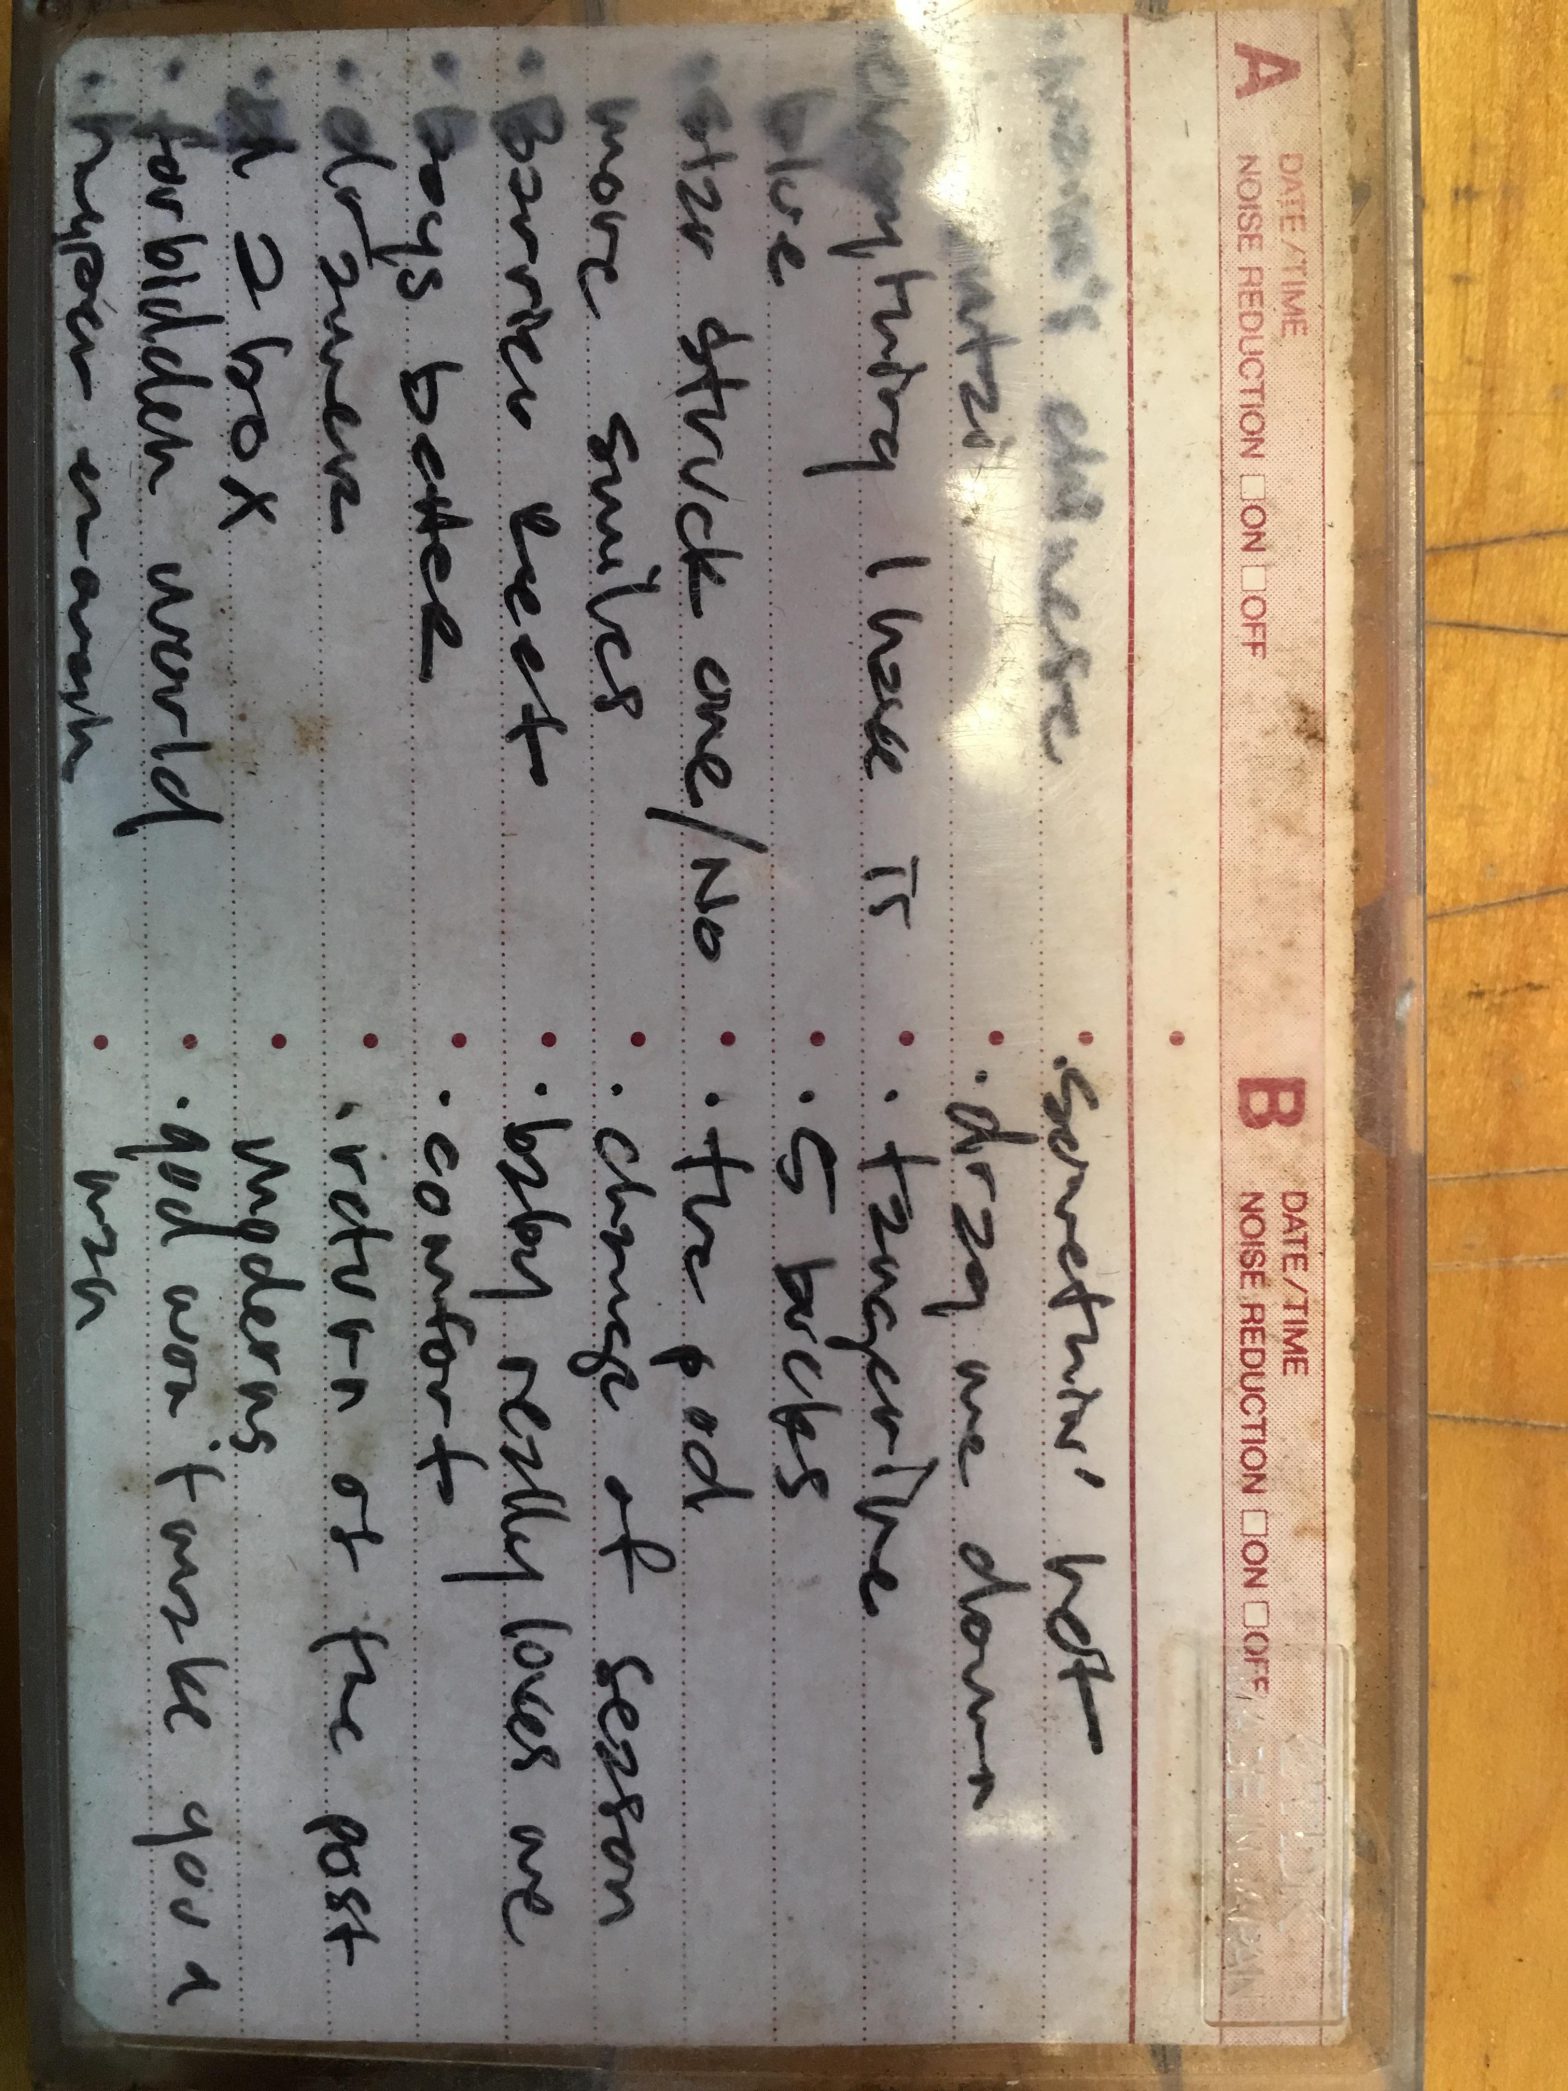 A DATE/TIME
NOISE REDUCTION □ON □OFF
B DATE/TIME
NOISE REDUCTION □ON □OFF
chinese
everything I have is
blue
star struck one/No
more smiles
Barrier reef
boys better
drzmen
a 2 box
forbidden world
hyper enough
·Somethin' hot
·drag me down
·tangerine
·5 bucks
·the pod
·change of season
·baby really loves me
·comfort
·return of the post
moderns
·god won't make you a
man
TDK
MADE IN JAPAN